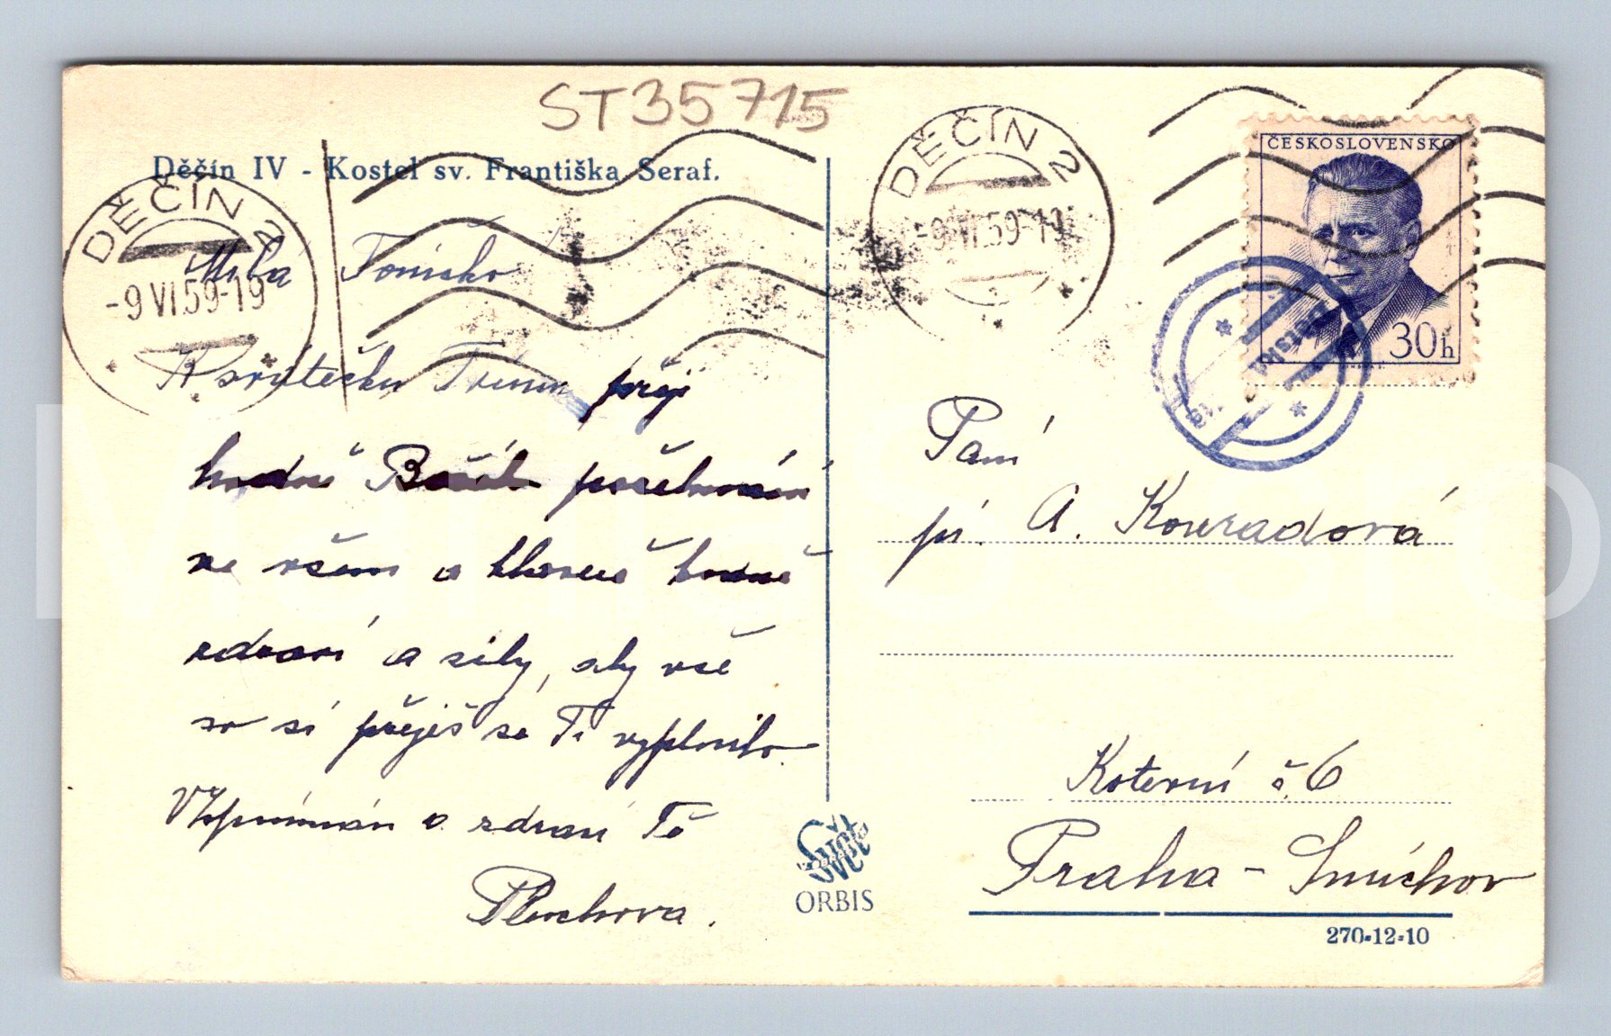 ST35715
Děčín IV - Kostel sv. Františka Seraf.
DĚČÍN 2
-9 VI.59-19
DĚČÍN 2
-9 VI.59-19
ČESKOSLOVENSKO
30h
Milá Toničko
K svátečku Tvému přeji
hodně Božíh požehnání
ve všem a hlavně hodně
zdraví a síly, aby vše
co si přeješ se Ti vyplnilo.
Vzpomínám a zdraví Tě
Plochova.
Paní
pí. A. Konradová
Koterní č. 6
Praha - Smíchov
Svět
ORBIS
270-12-10